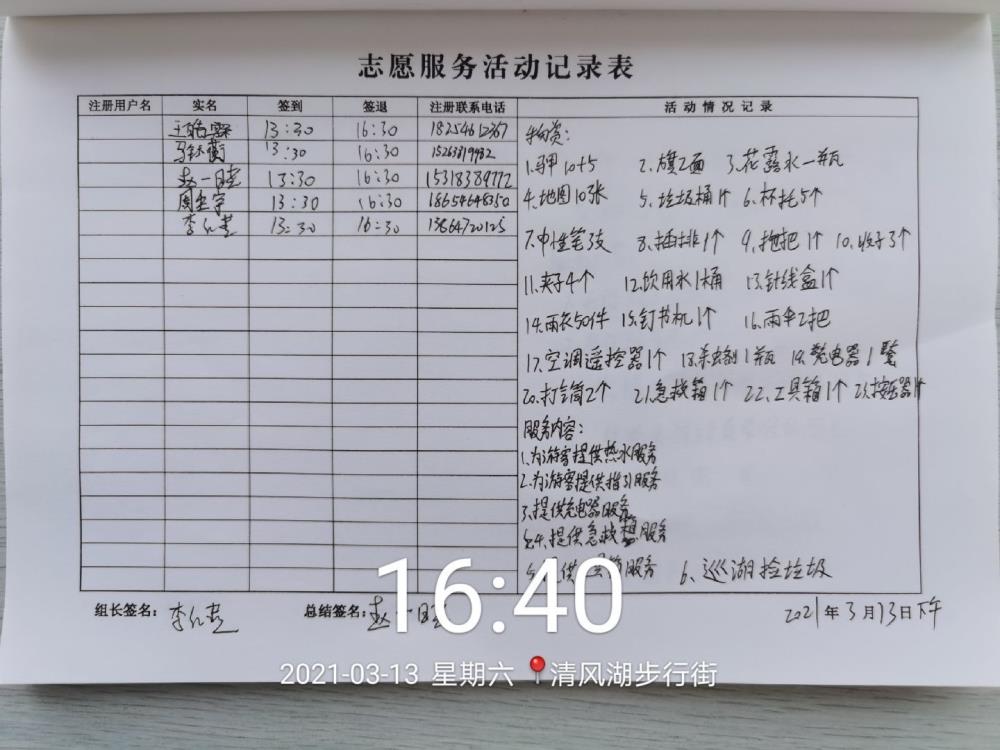 志愿服务活动记录表
注册用户名 实名 签到 签退 注册联系电话 活动情况记录
13:30 16:30 18254612367
13:30 16:30 15263819982
赵一 13:30 16:30 15318389772
周 宇 13:30 16:30 18654648350
李 13:30 16:30 13864720125
物资:
1.马甲10+5 2.旗2面 3.花露水一瓶
4.地图10张 5.垃圾桶1个 6.杯托5个
7.中性笔3支 8.插排1个 9.拖把1个 10. 3个
11.夹子4个 12.饮用水1桶 13.针线盒1个
14.雨衣50件 15.钉书机1个 16.雨伞2把
17.空调遥控器1个 18.杀虫剂1瓶 19.充电器1套
20.打气筒2个 21.急救箱1个 22.工具箱1个 23.按压器1个
服务内容:
1.为游客提供热水服务
2.为游客提供指引服务
3.提供充电器服务
4.提供急救箱服务
服务 6.巡湖捡垃圾
组长签名: 李 总结签名: 赵一 2021年3月13日下午
16:40
2021-03-13 星期六 清风湖步行街